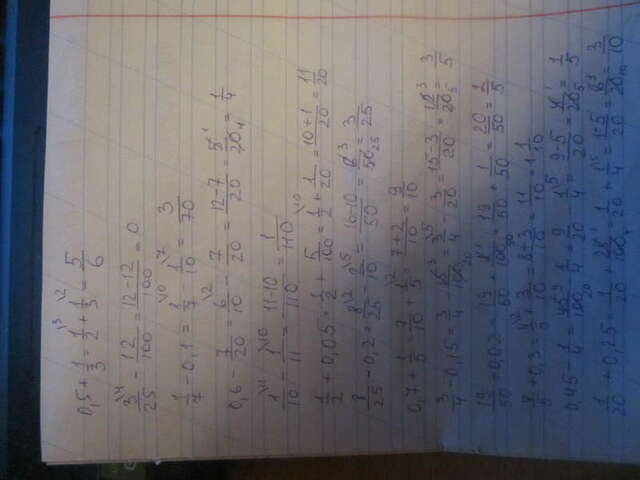 0,5 + 1/3 = 1\3/2 + 1\2/3 = 5/6
3\4/25 - 12/100 = 12-12/100 = 0
1/7 - 0,1 = 1\10/7 - 1\7/10 = 3/70
0,6 - 7/20 = 6\2/10 - 7/20 = 12-7/20 = 5 1/20 4 = 1/4
1\11/10 - 1\10/11 = 11-10/110 = 1/110
1/2 + 0,05 = 1/2 + 5/100 = 1\10/2 + 1/20 = 10+1/20 = 11/20
8/25 - 0,2 = 8\2/25 - 2\5/10 = 16-10/50 = 6 3/50 25 = 3/25
0,7 + 1/5 = 7/10 + 1\2/5 = 7+2/10 = 9/10
3/4 - 0,15 = 3/4 - 15 3/100 20 = 3\5/4 - 3/20 = 15-3/20 = 12 3/20 5 = 3/5
19/50 + 0,02 = 19/50 + 2 1/100 50 = 19/50 + 1/50 = 20/50 = 2/5
4/5 + 0,3 = 4\2/5 + 3/10 = 8+3/10 = 11/10 = 1 1/10
0,45 - 1/4 = 45 9/100 20 - 1/4 = 9/20 - 1\5/4 = 9-5/20 = 4 1/20 5 = 1/5
1/20 + 0,25 = 1/20 + 25 1/100 4 = 1/20 + 1\5/4 = 1+5/20 = 6 3/20 10 = 3/10